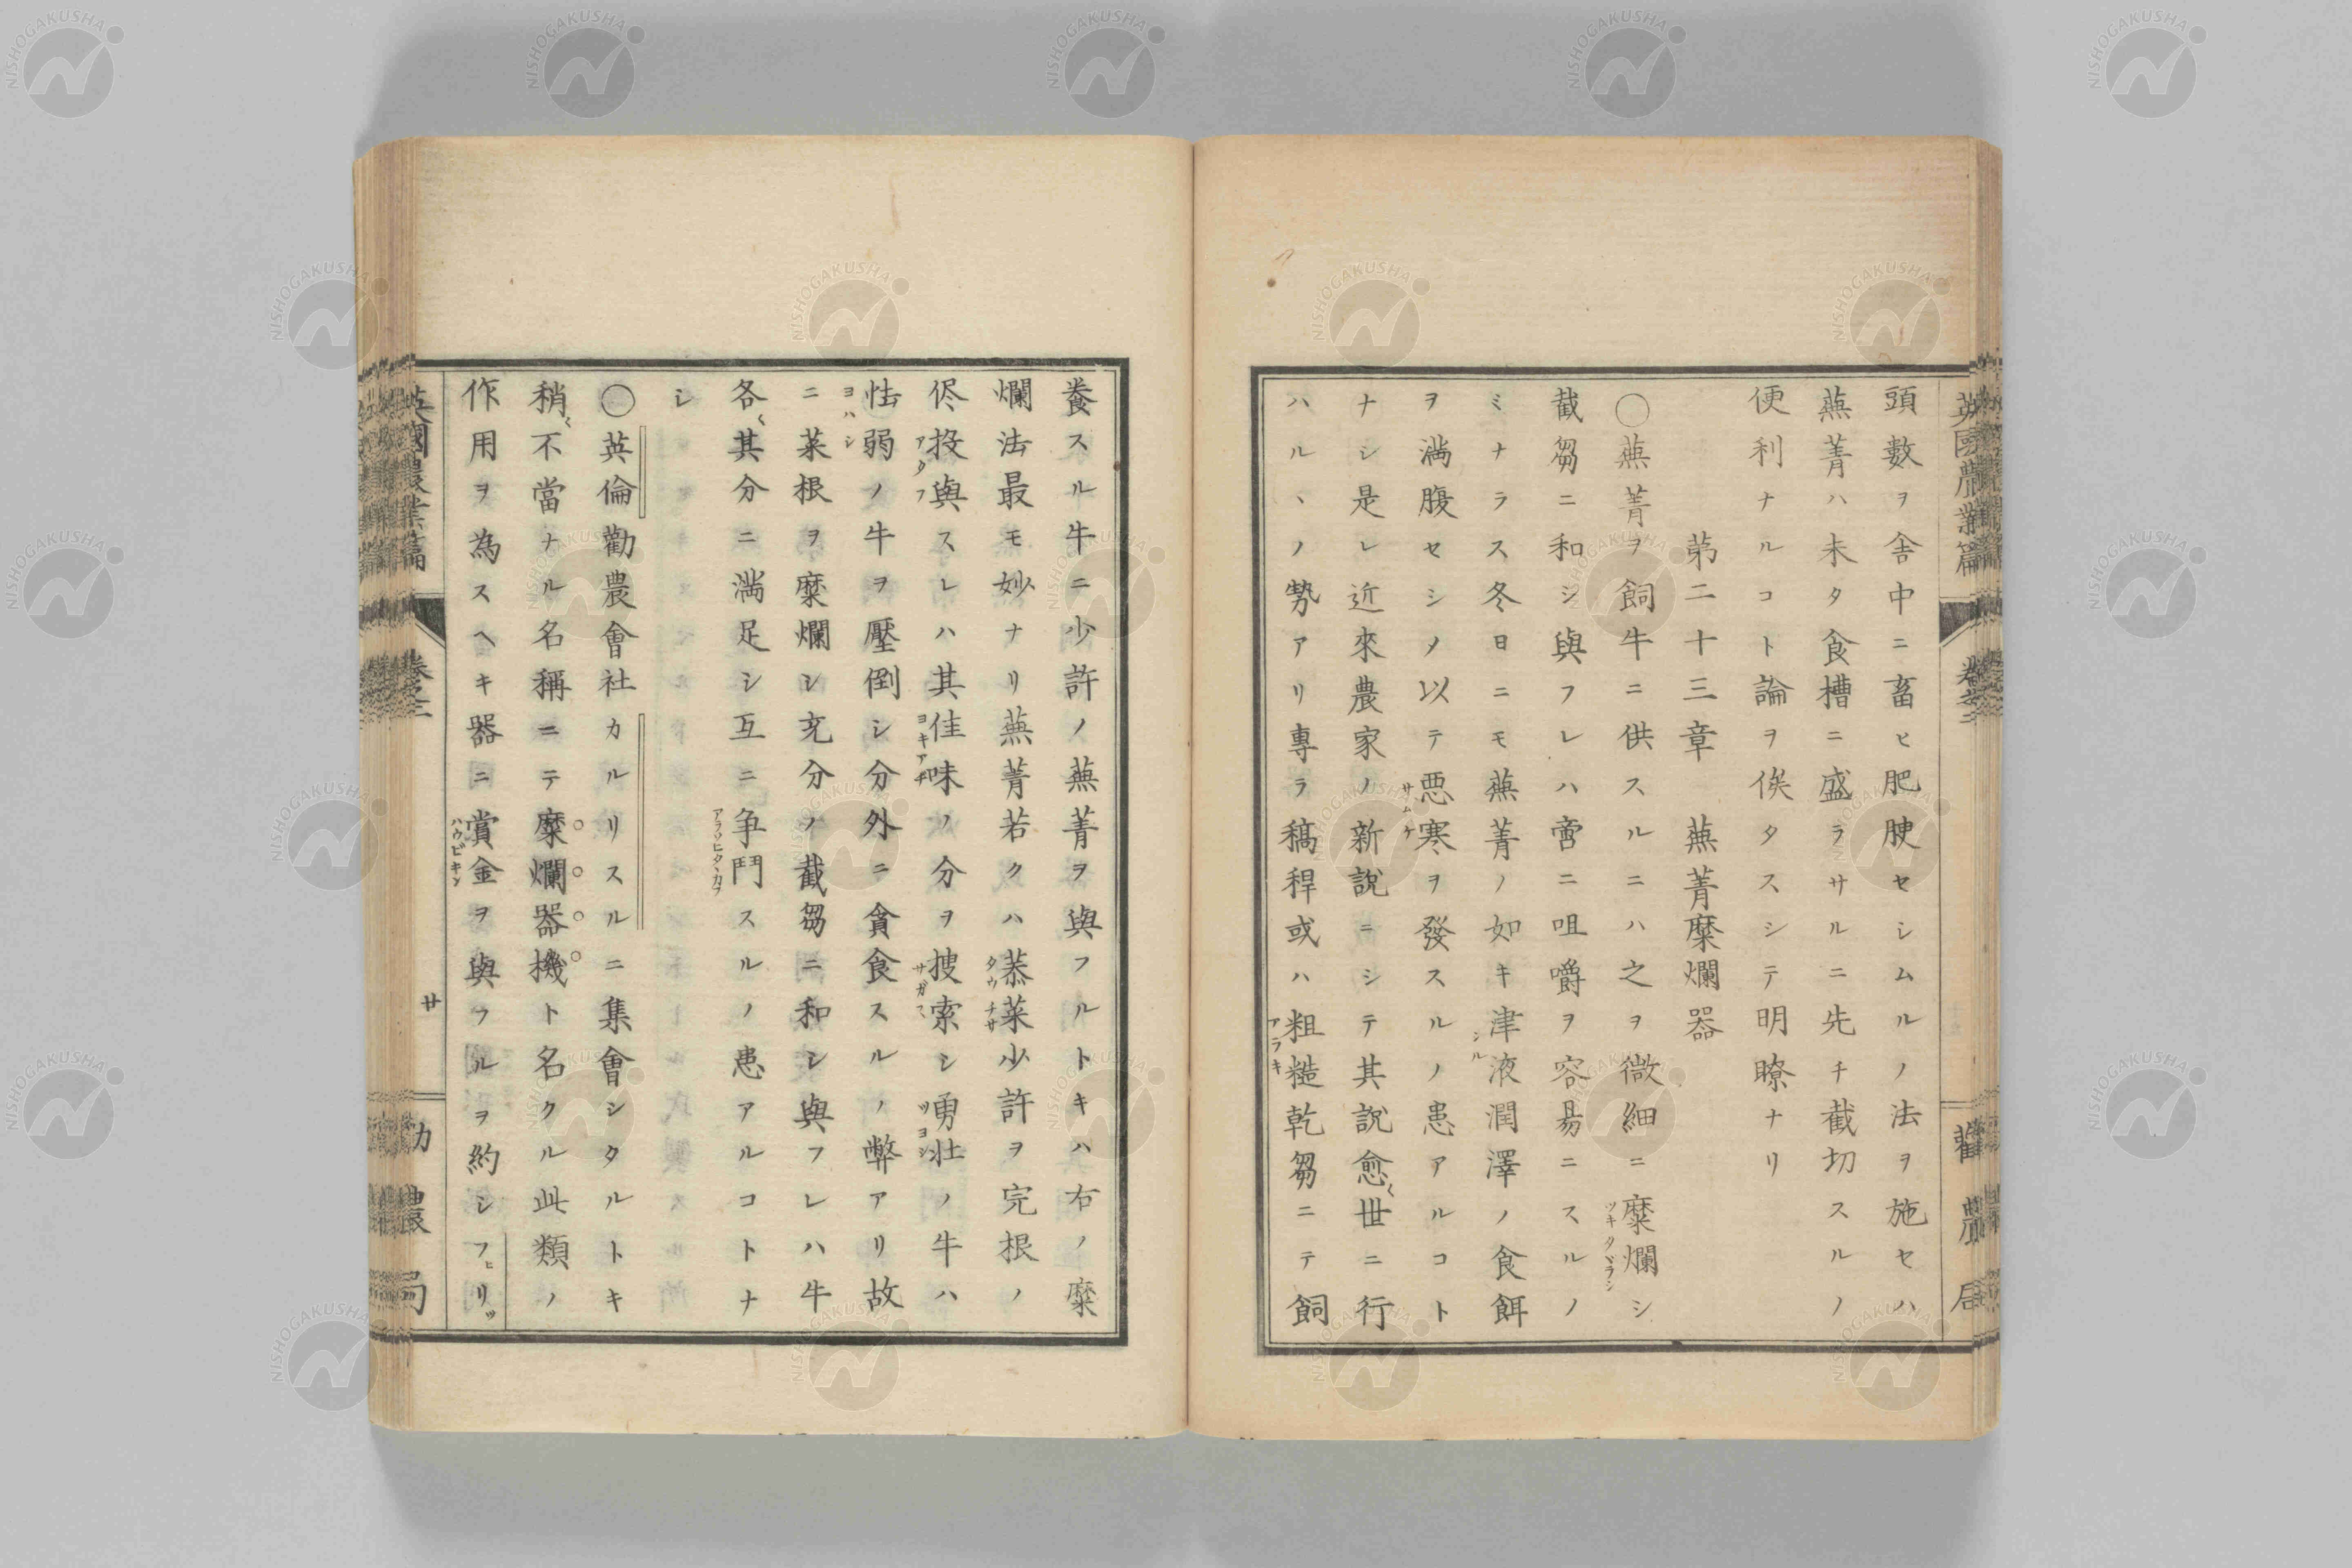 頭數ヲ舎中ニ畜ヒ肥腴セシムルノ法ヲ施セハ
蕪菁ハ未タ食槽ニ盛ラサルニ先チ截切スルノ
便利ナルコト論ヲ俟タスシテ明瞭ナリ
第二十三章 蕪菁糜爛器
◯蕪菁ヲ飼牛ニ供スルニハ之ヲ微細ニ糜爛シ
ツキタヾラシ
截芻ニ和シ與フレハ啻ニ咀嚼ヲ容昜ニスルノ
ミナラス冬日ニモ蕪菁ノ如キ津液潤澤ノ食餌
シル
ヲ満腹セシノ以テ悪寒ヲ發スルノ患アルコト
サムケ
ナシ是レ近來農家ノ新説ニシテ其説愈〱世ニ行
ハルヽノ勢アリ專ラ稿稈或ハ粗糙乾芻ニテ飼
アラキ
養スル牛ニ少許ノ蕪菁ヲ與フルトキハ右ノ糜
爛法最モ妙ナリ蕪菁若クハ菾菜少許ヲ完根ノ
タウチサ
侭投與スレハ其佳味ノ分ヲ搜索シ勇壮ノ牛ハ
アタフ ヨキアヂ サガス ツヨシ
怯弱ノ牛ヲ壓倒シ分外ニ貪食スルノ弊アリ故
ヨハシ
ニ菜根ヲ糜爛シ充分ノ截芻ニ和シ與フレハ牛
各〱其分ニ満足シ互ニ争鬥スルノ患アルコトナ
アラソヒタヽカフ
シ
◯英倫勸農會社カルリスルニ集會シタルトキ
稍〱不當ナル名稱ニテ糜爛器機ト名クル此類ノ
作用ヲ為スヘキ器ニ賞金ヲ與フルヲ約シフヒリツ
ハウビキン
英國農業篇 卷之二 勸農局
英國農業篇 卷之二 廿 勸農局
NISHOGAKUSHA